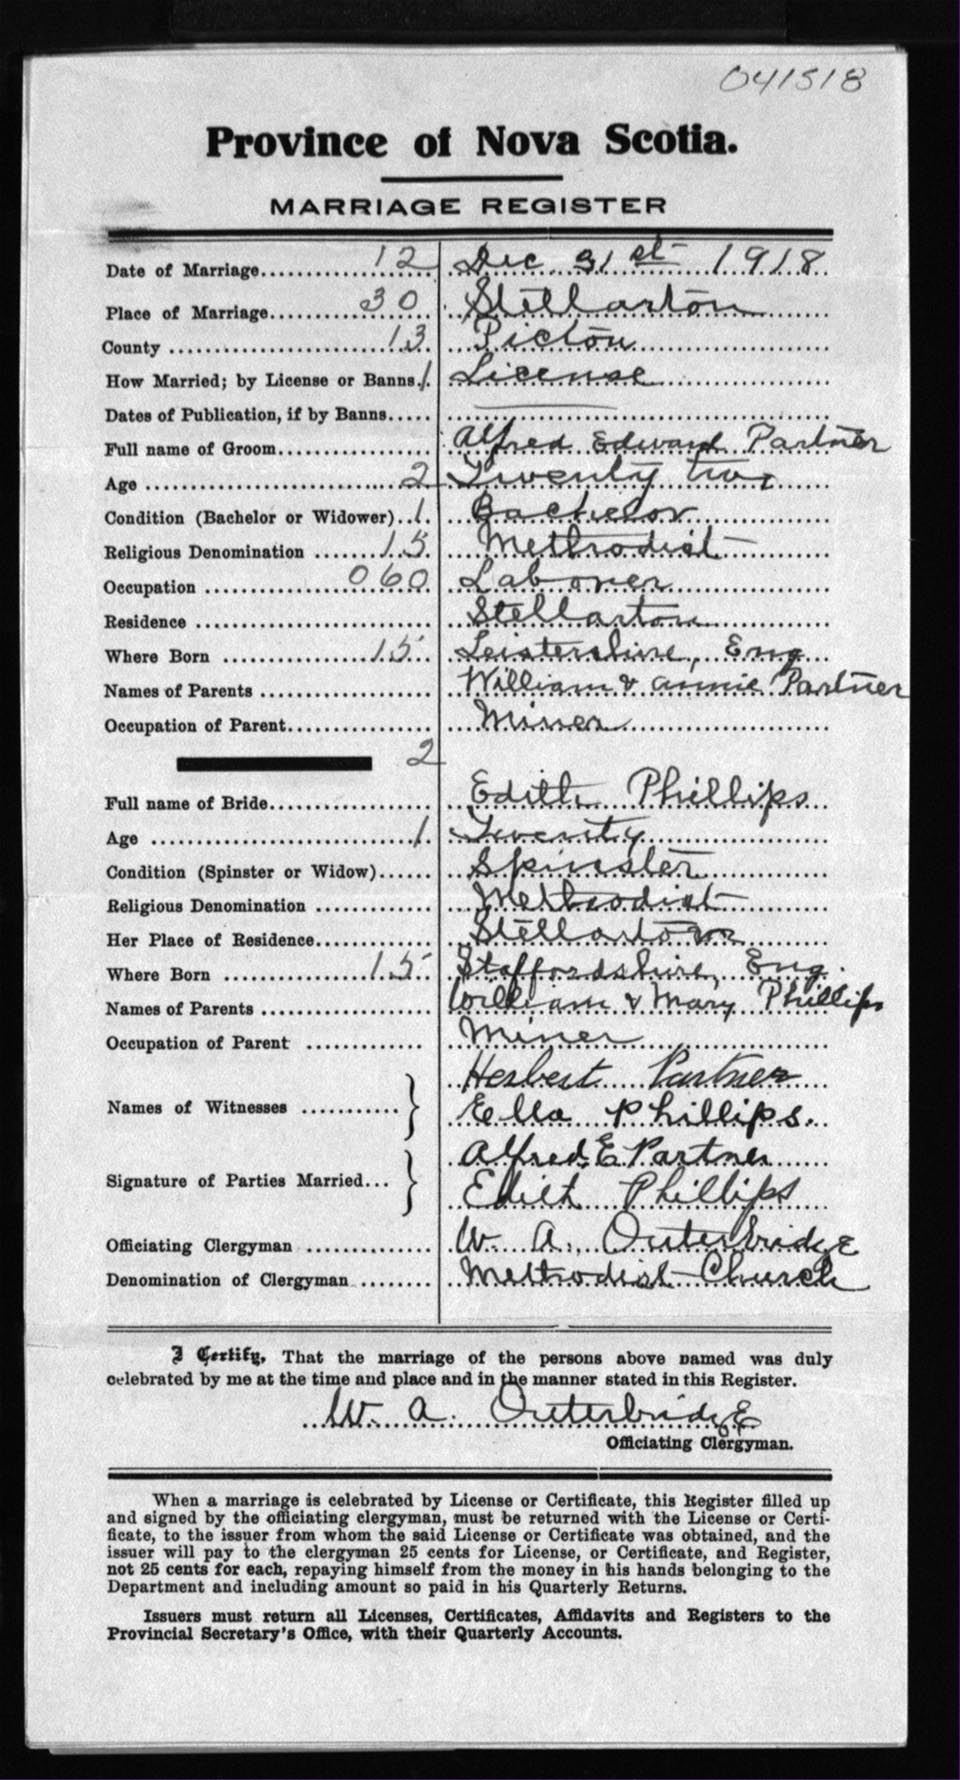 041518
Province of Nova Scotia.
MARRIAGE REGISTER
Date of Marriage 12 Dec 31st 1918
Place of Marriage 30 Stellarton
County 13 Pictou
How Married; by License or Banns 1 License
Dates of Publication, if by Banns
Full name of Groom Alfred Edward Partner
Age 2 Twenty two
Condition (Bachelor or Widower) 1 Bachelor
Religious Denomination 15 Methodist
Occupation 060 Laborer
Residence Stellarton
Where Born 15 Leistershire, Eng
Names of Parents William & Annie Partner
Occupation of Parent Miner
2
Full name of Bride Edith Phillips
Age 1 Twenty
Condition (Spinster or Widow) Spinster
Religious Denomination Methodist
Her Place of Residence Stellarton
Where Born 15 Staffordshire, Eng.
Names of Parents William & Mary Phillips
Occupation of Parent Miner
Names of Witnesses Herbert Partner
Ella Phillips.
Signature of Parties Married Alfred E Partner
Edith Phillips
Officiating Clergyman W. A. Outerbridge
Denomination of Clergyman Methodist Church
I Certify, That the marriage of the persons above named was duly
celebrated by me at the time and place and in the manner stated in this Register.
W. A. Outerbridge
Officiating Clergyman.
When a marriage is celebrated by License or Certificate, this Register filled up
and signed by the officiating clergyman, must be returned with the License or Certi-
ficate, to the issuer from whom the said License or Certificate was obtained, and the
issuer will pay to the clergyman 25 cents for License, or Certificate, and Register,
not 25 cents for each, repaying himself from the money in his hands belonging to the
Department and including amount so paid in his Quarterly Returns.
Issuers must return all Licenses, Certificates, Affidavits and Registers to the
Provincial Secretary's Office, with their Quarterly Accounts.